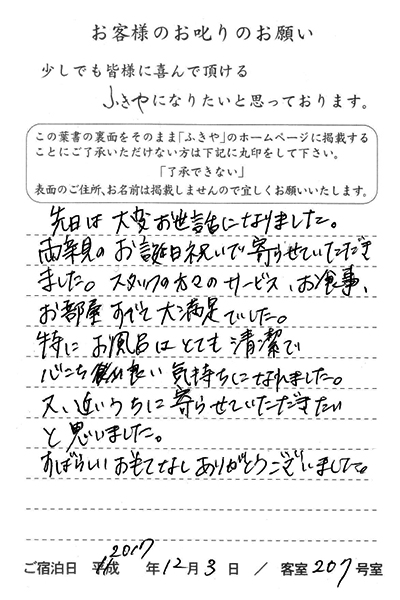 お客様のお叱りのお願い
少しでも皆様に喜んで頂ける
ふきやになりたいと思っております。
この葉書の裏面をそのまま「ふきや」のホームページに掲載する
ことにご了承いただけない方は下記に丸印をして下さい。
「了承できない」
表面のご住所、お名前は掲載しませんので宜しくお願いいたします。
先日は大変お世話になりました。
両親のお誕生日祝いで寄らせていただき
ました。スタッフの方々のサービス、お食事、
お部屋すべて大満足でした。
特にお風呂はとても清潔で
心こち良い気持ちになれました。
又、近いうちに寄らせていただきたい
と思いました。
すばらしいおもてなしありがとうございました。
ご宿泊日 平成 2017 年 12 月 3 日 / 客室 207 号室